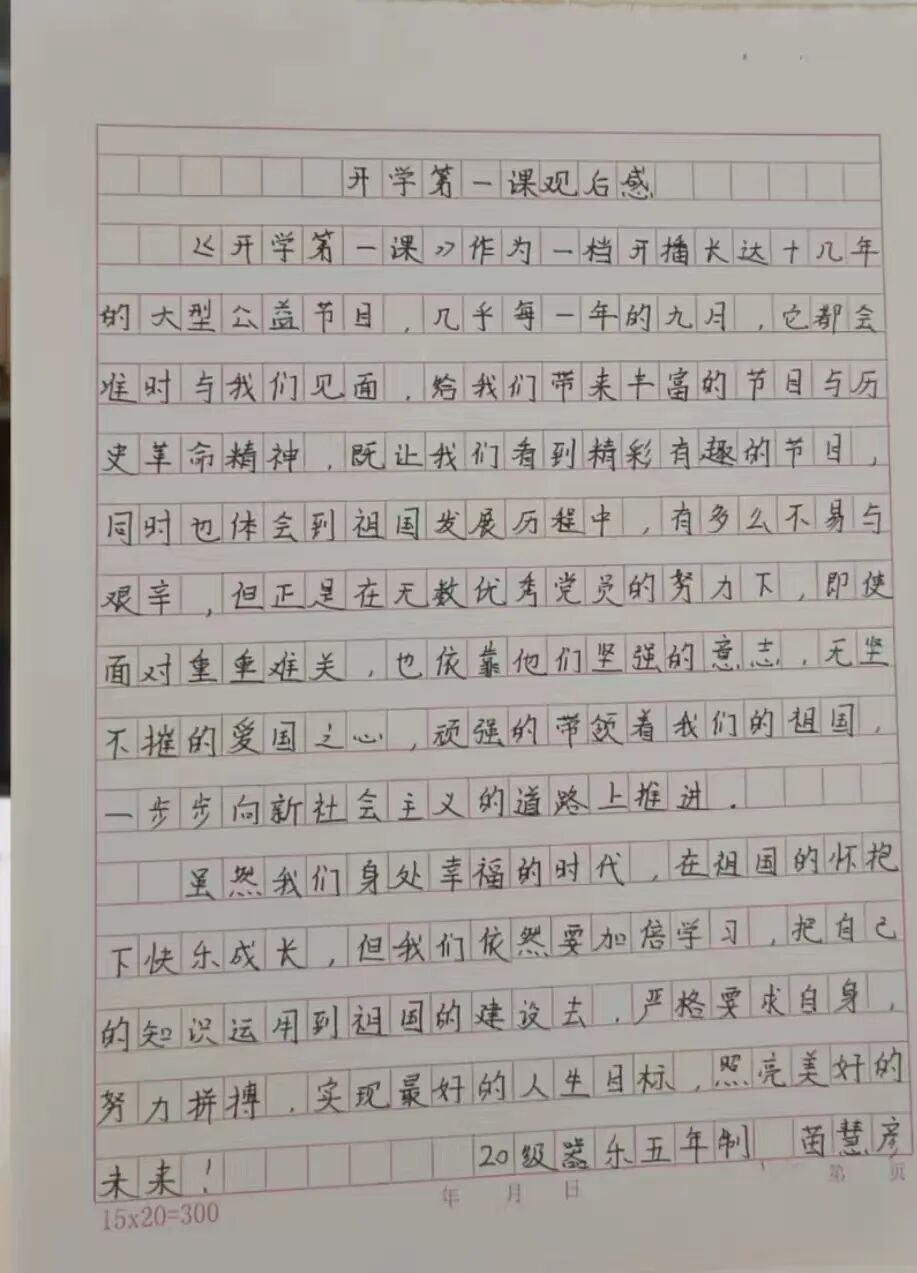 开学第一课观后感
《开学第一课》作为一档开播长达十几年
的大型公益节目，几乎每一年的九月，它都会
准时与我们见面，给我们带来丰富的节目与历
史革命精神，既让我们看到精彩有趣的节目，
同时也体会到祖国发展历程中，有多么不易与
艰辛，但正是在无数优秀党员的努力下，即使
面对重重难关，也依靠他们坚强的意志，无坚
不摧的爱国之心，顽强的带领着我们的祖国，
一步步向新社会主义的道路上推进．
虽然我们身处幸福的时代，在祖国的怀抱
下快乐成长，但我们依然要加倍学习，把自己
的知识运用到祖国的建设去，严格要求自身，
努力拼搏，实现最好的人生目标，照亮美好的
未来！ 20级器乐五年制 茵慧彦
年 月 日 第 页
15x20=300